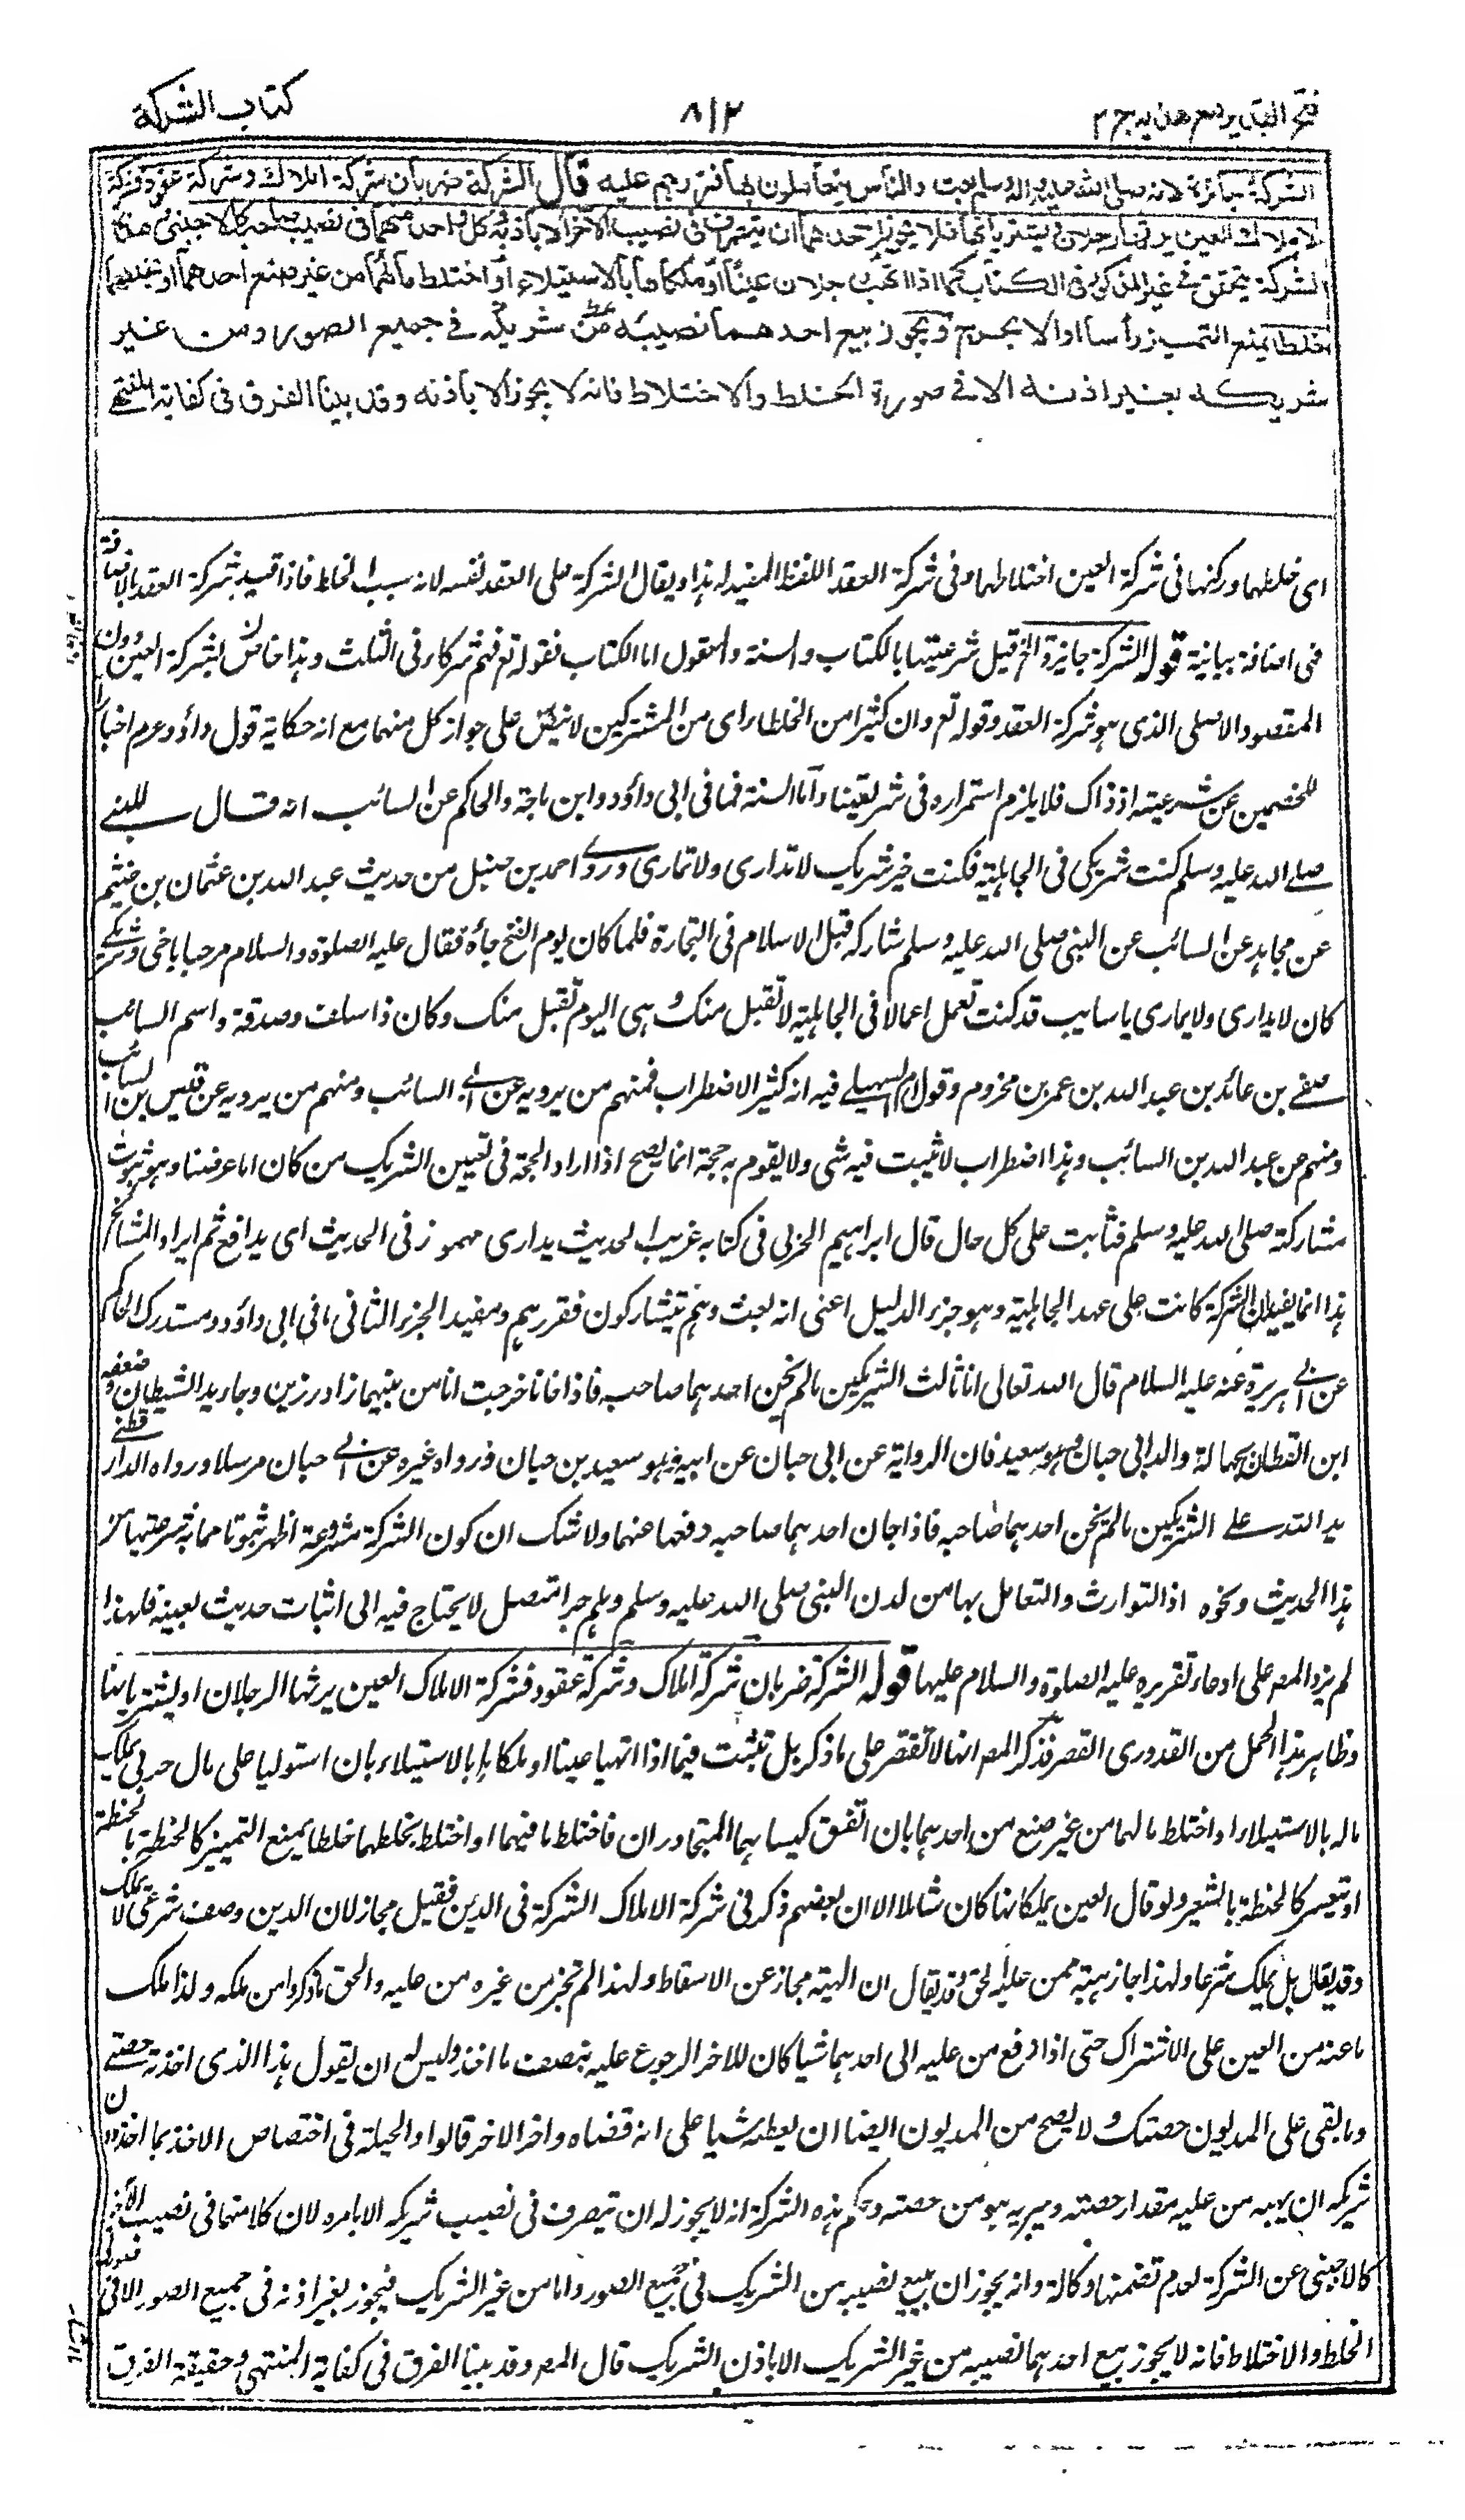 فتح القدير مع هدايه ج ٢
٨١٢
كتاب الشركة
الشركة جائزة لانه صلى الله عليه واله وسلم بعث والناس يتعاملون بها فقررهم عليه قال الشركة ضربان شركة املاك وشركة عقود فشركة
الاملاك العين يرثها رجلان او يشتريانها فلا يجوز لاحدهما ان يتصرف في نصيب الآخر الا باذنه وكل واحد منهما في نصيب صاحبه كالاجنبي وهذه
الشركة يتحقق في غير المذكور في الكتاب كما اذا اتهب رجلان عينا او ملكاها بالاستيلاء او اختلط مالهما من غير صنع احدهما او بخلطهما
خلطا يمنع التمييز رأسا او الا بحرج ويجوز بيع احدهما نصيبه من شريكه في جميع الصور ومن غير
شريكه بغير اذنه الا في صورة الخلط والاختلاط فانه لا يجوز الا باذنه وقد بينا الفرق في كفاية المنتهى
اى خلطهما وركنها في شركة العين اختلاطهما وفي شركة العقد اللفظ المفيد له هذا ويقال الشركة على العقد نفسه لانه سبب الخلط فاذا قيل شركة العقد بالاضافة
فهى اضافة بيانية قوله الشركة جائزة الخ قيل شرعيتها بالكتاب والسنة والمعقول اما الكتاب فقوله تع فهم شركاء في الثلث وهذا خاص بشركة العين دون
المقصود الاصلى الذى هو شركة العقد وقوله تع وان كثيرا من الخلطاء اى من المشتركين لا ينص على جواز كل منهما مع انه حكاية قول داؤد عم اخبارا
للخصمين عن شرعيته اذ ذاك فلا يلزم استمراره في شريعتنا واما السنة فما في ابى داؤد وابن ماجة والحاكم عن السائب انه قال للنبى
صلى الله عليه وسلم كنت شريكى في الجاهلية فكنت خير شريك لا تدارى ولا تمارى ورواه احمد بن حنبل من حديث عبد الله بن عثمان بن خثيم
عن مجاهد عن السائب عن النبى صلى الله عليه وسلم شاركه قبل الاسلام في التجارة فلما كان يوم الفتح جاءه فقال عليه الصلوة والسلام مرحبا باخى وشريكى
كان لا يدارى ولا يمارى يا سايب قد كنت تعمل اعمالا في الجاهلية لا تقبل منك وهى اليوم تقبل منك وكان ذا سلف وصدقة واسم السائب
صيفى بن عائد بن عبد الله بن عمر بن مخزوم وقول السهيلى فيه انه كثير الاضطراب فمنهم من يرويه عن ابى السائب ومنهم من يرويه عن قيس بن السائب
ومنهم عن عبد الله بن السائب وهذا اضطراب لا يثبت فيه شى ولا يقوم به حجة انما يصح اذا اراد الحجة في تعيين الشريك من كان اما غرضنا وهو ثبوت
مشاركته صلى الله عليه وسلم فثابت على كل حال قال ابراهيم الحربى في كتابه غريب الحديث يدارى مهموز في الحديث اى يدافع ثم ايراد المشائخ
هذا انما يفيد ان الشركة كانت على عهد الجاهلية وهو جزء الدليل اعنى انه بعث وهم يتشاركون فقررهم ومفيد الجزء الثانى ما في ابى داؤد ومستدرك الحاكم
عن ابى هريرة عنه عليه السلام قال الله تعالى انا ثالث الشريكين مالم يخن احدهما صاحبه فاذا خانا خرجت انا من بينهما زاد رزين وجاء يد الشيطان وضعفه
ابن القطان بجهالة والد ابى حبان وهو سعيد فان الرواية عن ابى حبان عن ابيه وهو سعيد بن حبان ورواه غيره عن ابى حبان مرسلا ورواه الدارقطنى
يد الله على الشريكين مالم يخن احدهما صاحبه فاذا خان احدهما صاحبه رفعها عنهما ولا شك ان كون الشركة مشروعة اظهر ثبوتا مما به شرعيتها من
هذا الحديث ونحوه اذ التوارث والتعامل بها من لدن النبى صلى الله عليه وسلم وهلم جرا متصل لا يحتاج فيه الى اثبات حديث بعينه فلهذا
لم يزد المصـ على ادعاء تقريره عليه الصلوة والسلام عليها قوله الشركة ضربان شركة املاك وشركة عقود فشركة الاملاك العين يرثها الرجلان او يشتريانها
وظاهر هذا الحمل من القدورى القصر فذكر المصـ انها لا تقتصر على ما ذكر بل تثبت فيما اذا اتهبا عينا او ملكاها بالاستيلاء بان استوليا على مال حربى يملك
ماله بالاستيلاء او اختلط مالهما من غير صنع من احدهما بان انفتق كيساهما المتجاوران فاختلط ما فيهما او اختلط بخلطهما خلطا يمنع التمييز كالحنطة بالحنطة
او يتعسر كالحنطة بالشعير ولو قال العين يملكانها كان شاملا الا ان بعضهم ذكر في شركة الاملاك الشركة في الدين فقيل مجاز لان الدين وصف شرعى لا يملك
وقد يقال بل يملك شرعا ولهذا جاز هبته ممن عليه الحق وقد يقال ان الهبة مجاز عن الاسقاط ولهذا لم تجز من غيره من عليه والحق ما ذكروا من ملكه ولذا ملك
ما عنه من العين على الاشتراك حتى اذا دفع من عليه الى احدهما شيا كان للاخر الرجوع عليه بنصف ما اخذ وليس له ان يقول هذا الذى اخذته حصتى
وما بقى على المديون حصتك ولا يصح من المديون ايضا ان يعطيه شيا على انه قضاه واخر الاخر قالوا والحيلة في اختصاص الاخذ بما اخذ دون
شريكه ان يهبه من عليه مقدار حصته ويبريه هو من حصته وحكم هذه الشركة انه لا يجوز له ان يتصرف في نصيب شريكه الا بامره لان كلا منهما في نصيب الآخر
كالاجنبى عن الشركة لعدم تضمنها وكالة وانه يجوز ان يبيع نصيبه من الشريك في جميع الصور واما من غير الشريك فيجوز بغير اذنه في جميع الصور الا في صورة
الخلط والاختلاط فانه لا يجوز بيع احدهما نصيبه من غير الشريك الا باذن الشريك قال المصـ وقد بينا الفرق في كفاية المنتهى وحقيقة الفرق